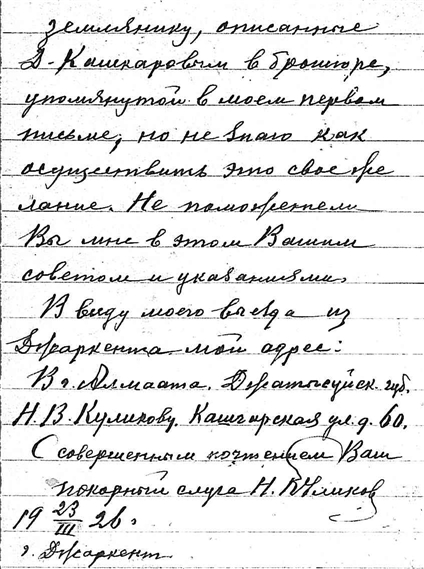 землянику, описанные
Д. Кашкаровым в брошюре,
упомянутой в моем первом
письме, но не знаю как
осуществить это свое же
лание. Не поможете ли
Вы мне в этом Вашим
советом и указаниями.
В виду моего выезда из
Джаркента мой адрес:
В г. Алмаата. Джатысуйск. губ.
Н. В. Куликову. Кашгарская ул. д. 60.
С совершенным почтением Ваш
покорный слуга Н. Куликов
19 23/III 26.
г. Джаркент